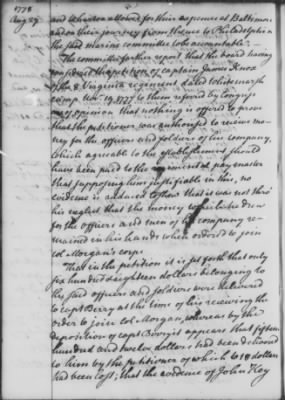 1778
Aug 27
and Wharton allowed for their expences at Baltimore
and on their journey from thence to Philadelphia
the said marine committee to be accountable.
The committee farther report that the board having
considered the petition of captain James Knox
of the 8 Virginia regiment dated Whitemarsh
camp Nov. 19. 1777 & to them referred by Congress
are of opinion that nothing is offered to prove
that the petitioner was authorised to receive mo-
ney for the officers and soldiers of his company,
which agreeable to the establishment should
have been paid to the regimental pay master
that supposing him justifiable in this, no
evidence is adduced to shew that it was not thro'
his neglect that the money was drawn
for the officers and men of his company re-
mained in his hands when ordered to join
col Morgan's corps.
That in the petition it is set forth that only
six hundred & eighteen dollars belonging to
the said officers and soldiers were delivered
to capt Berry at the time of his receiving the
order to join col. Morgan, whereas by the
deposition of capt Berry it appears that fifteen
hundred and twelve dollars had been delivered
to him by the petitioner of which 618 dollars
had been lost; that the evidence of John Hoy